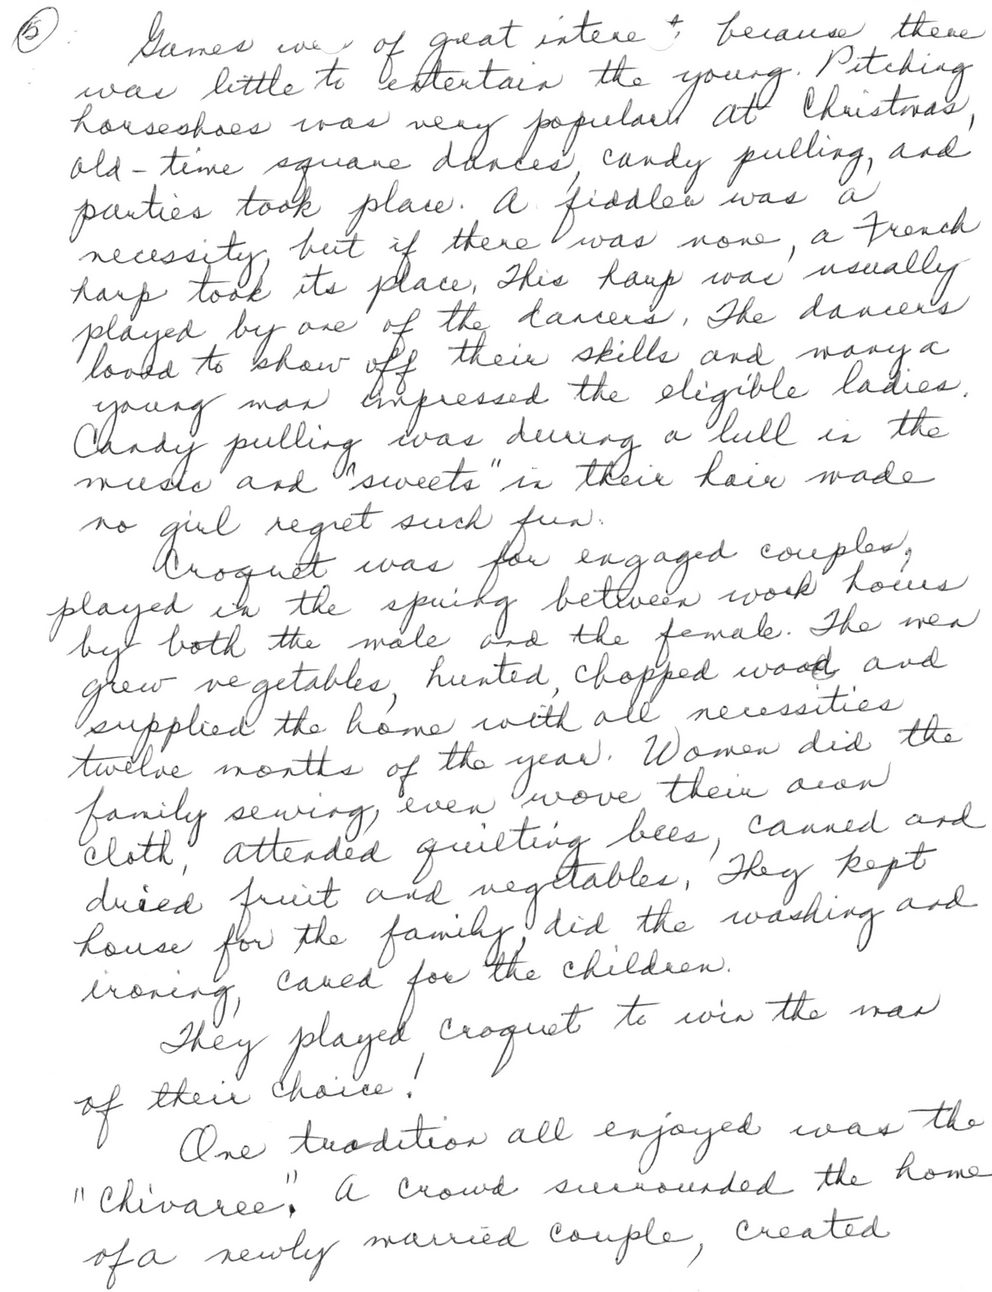 5
Games we of great intere t because there
was little to entertain the young. Pitching
horseshoes was very popular. At Christmas,
old-time square dances, candy pulling, and
parties took place. A fiddler was a
necessity, but if there was none, a French
harp took its place. This harp was usually
played by one of the dancers. The dancers
loved to show off their skills and many a
young man impressed the eligible ladies.
Candy pulling was during a lull in the
music and "sweets" in their hair made
no girl regret such fun.
Croquet was for engaged couples,
played in the spring between work hours
by both the male and the female. The men
grew vegetables, hunted, chopped wood and
supplied the home with all necessities
twelve months of the year. Women did the
family sewing, even wove their own
cloth, attended quilting bees, canned and
dried fruit and vegetables. They kept
house for the family, did the washing and
ironing, cared for the children.
They played croquet to win the man
of their choice!
One tradition all enjoyed was the
"Chivaree". A crowd surrounded the home
of a newly married couple, created